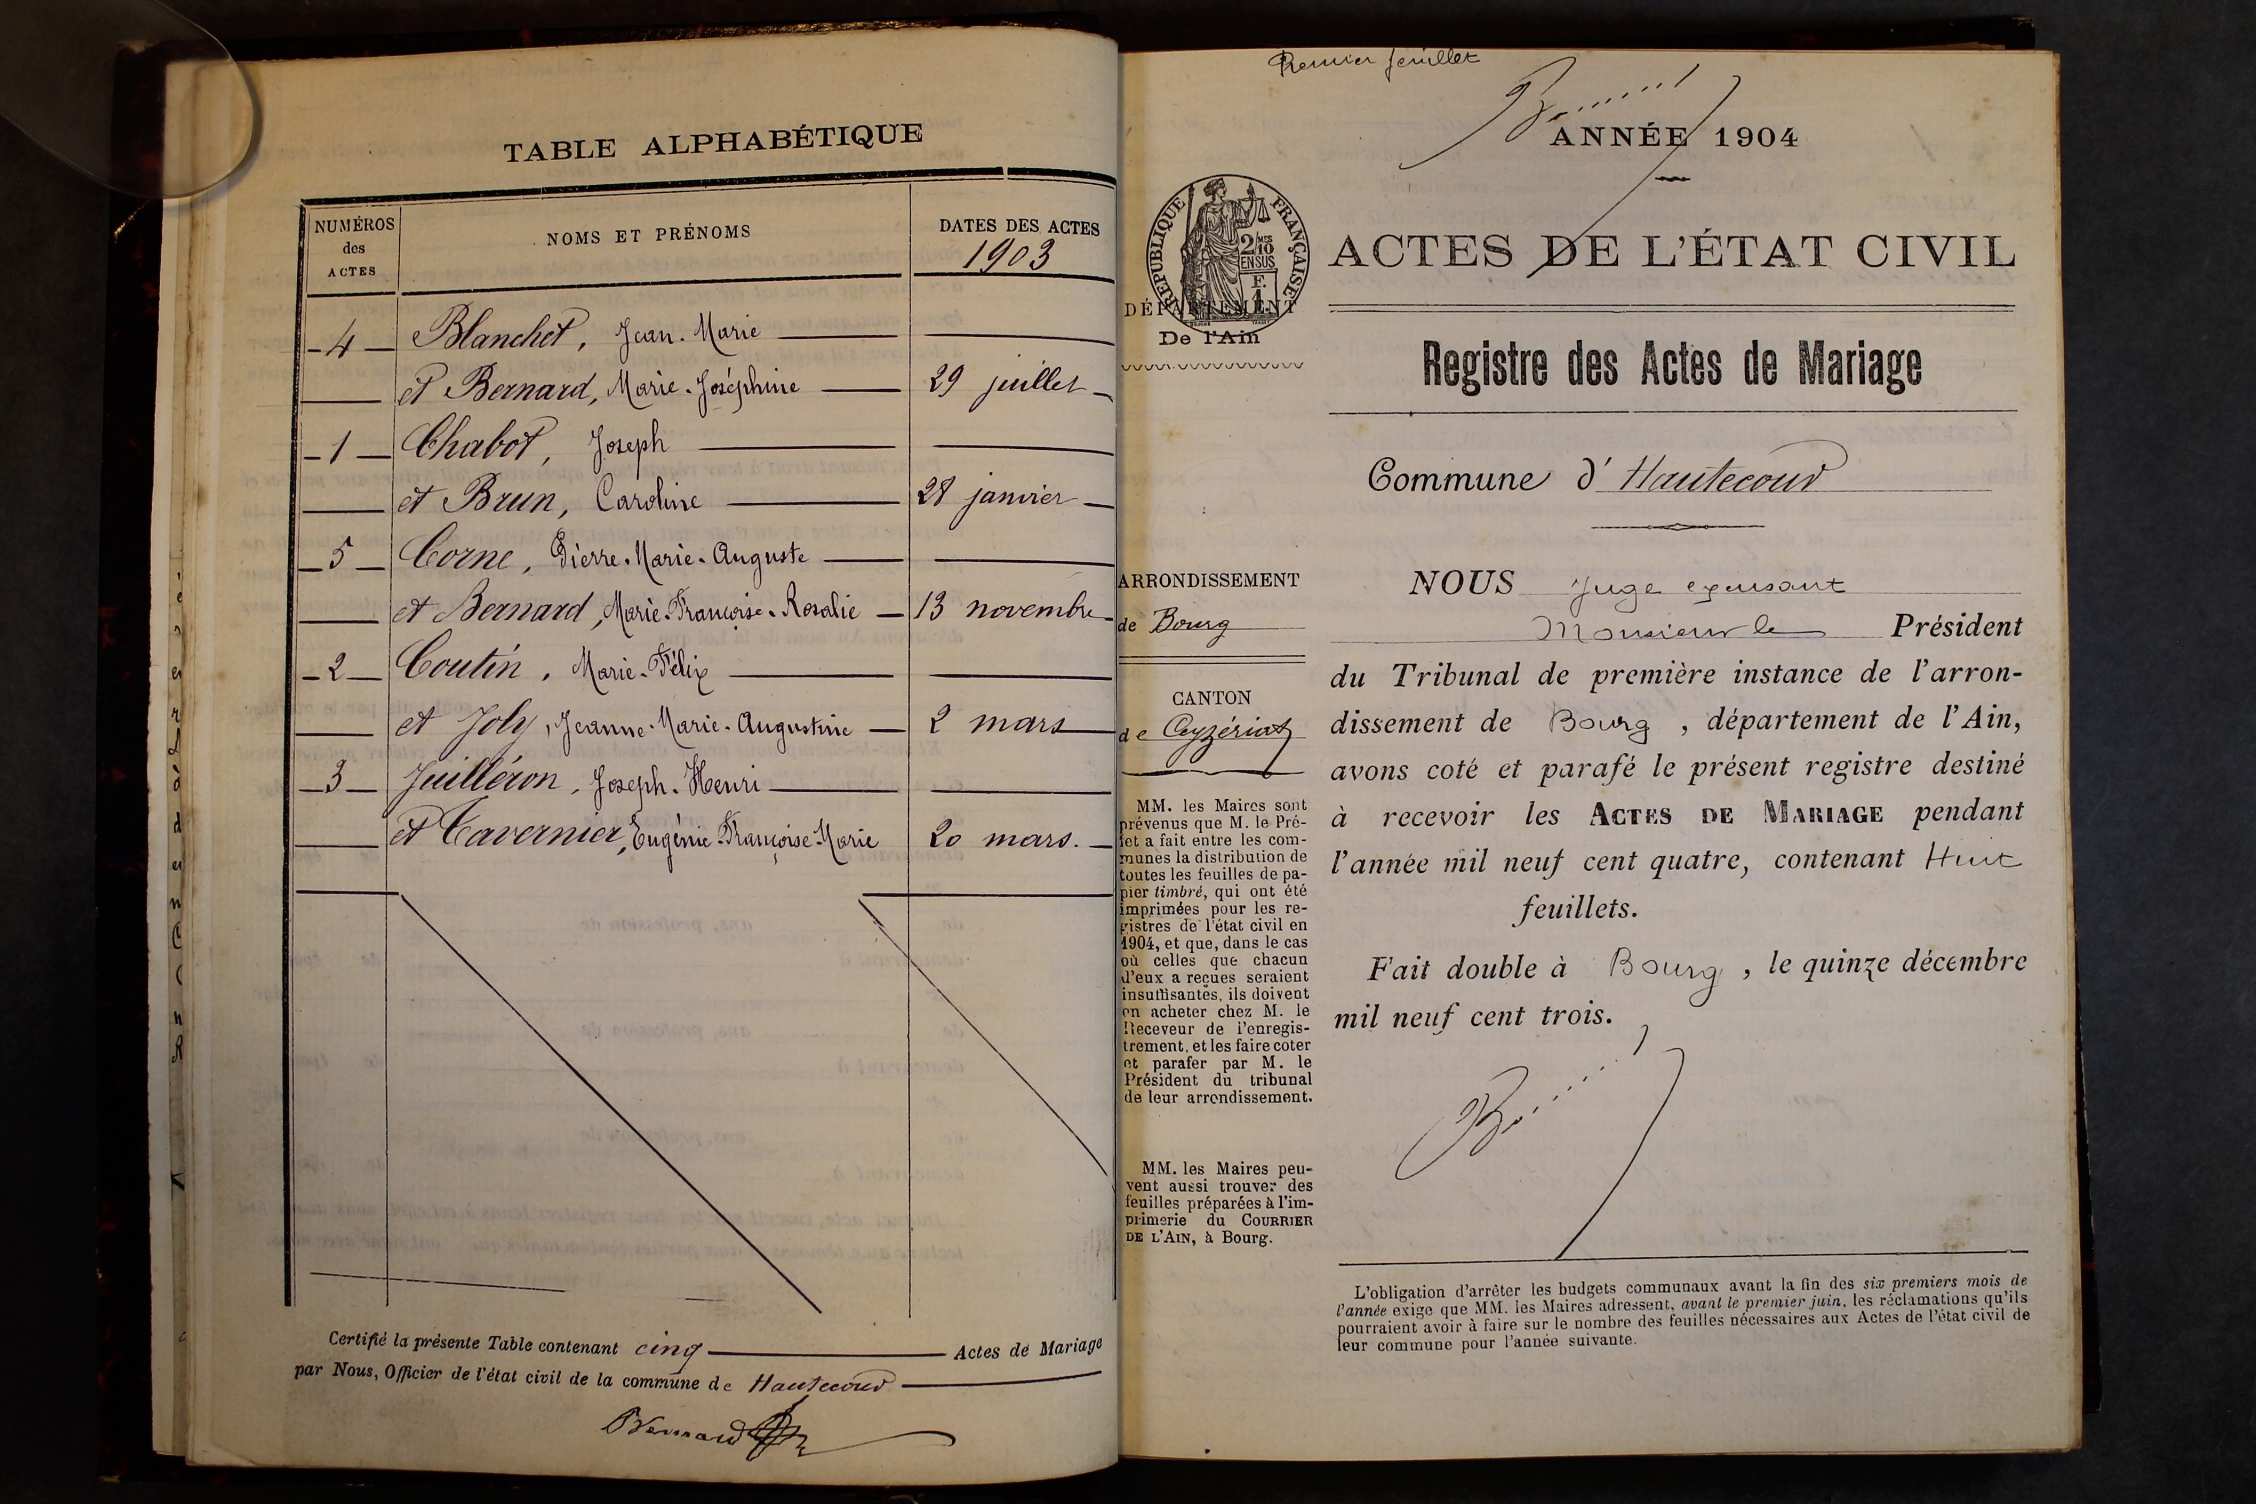 TABLE ALPHABÉTIQUE
NUMÉROS
des
ACTES
NOMS ET PRÉNOMS
DATES DES ACTES
1903
4 Blanchet, Jean-Marie
et Bernard, Marie-Joséphine 29 juillet
1 Chabot, Joseph
et Brun, Caroline 28 janvier
5 Corne, Pierre-Marie-Auguste
et Bernard, Marie-Françoise-Rosalie 13 novembre
2 Coutin, Marie-Félix
et Joly, Jeanne-Marie-Augustine 2 mars
3 Juilléron, Joseph-Henri
et Tavernier, Eugénie-Françoise-Marie 20 mars.
Certifié la présente Table contenant cinq Actes de Mariage
par Nous, Officier de l'état civil de la commune de Hautecour
Bernard
Premier feuillet
ANNÉE 1904
RÉPUBLIQUE FRANÇAISE
2/10 MES
EN SUS
F.
1
DÉPARTEMENT
De l'Ain
ACTES DE L'ÉTAT CIVIL
Registre des Actes de Mariage
Commune d'Hautecour
ARRONDISSEMENT
de Bourg
CANTON
de Ceyzériat
MM. les Maires sont
prévenus que M. le Pré-
fet a fait entre les com-
munes la distribution de
toutes les feuilles de pa-
pier timbré, qui ont été
imprimées pour les re-
gistres de l'état civil en
1904, et que, dans le cas
où celles que chacun
d'eux a reçues seraient
insuffisantes, ils doivent
en acheter chez M. le
Receveur de l'enregis-
trement, et les faire coter
et parafer par M. le
Président du tribunal
de leur arrondissement.
MM. les Maires peu-
vent aussi trouver des
feuilles préparées à l'im-
primerie du COURRIER
DE L'AIN, à Bourg.
NOUS Juge excusant
Monsieur le Président
du Tribunal de première instance de l'arron-
dissement de Bourg, département de l'Ain,
avons coté et parafé le présent registre destiné
à recevoir les ACTES DE MARIAGE pendant
l'année mil neuf cent quatre, contenant Huit
feuillets.
Fait double à Bourg, le quinze décembre
mil neuf cent trois.
L'obligation d'arrêter les budgets communaux avant la fin des six premiers mois de
l'année exige que MM. les Maires adressent, avant le premier juin, les réclamations qu'ils
pourraient avoir à faire sur le nombre des feuilles nécessaires aux Actes de l'état civil de
leur commune pour l'année suivante.